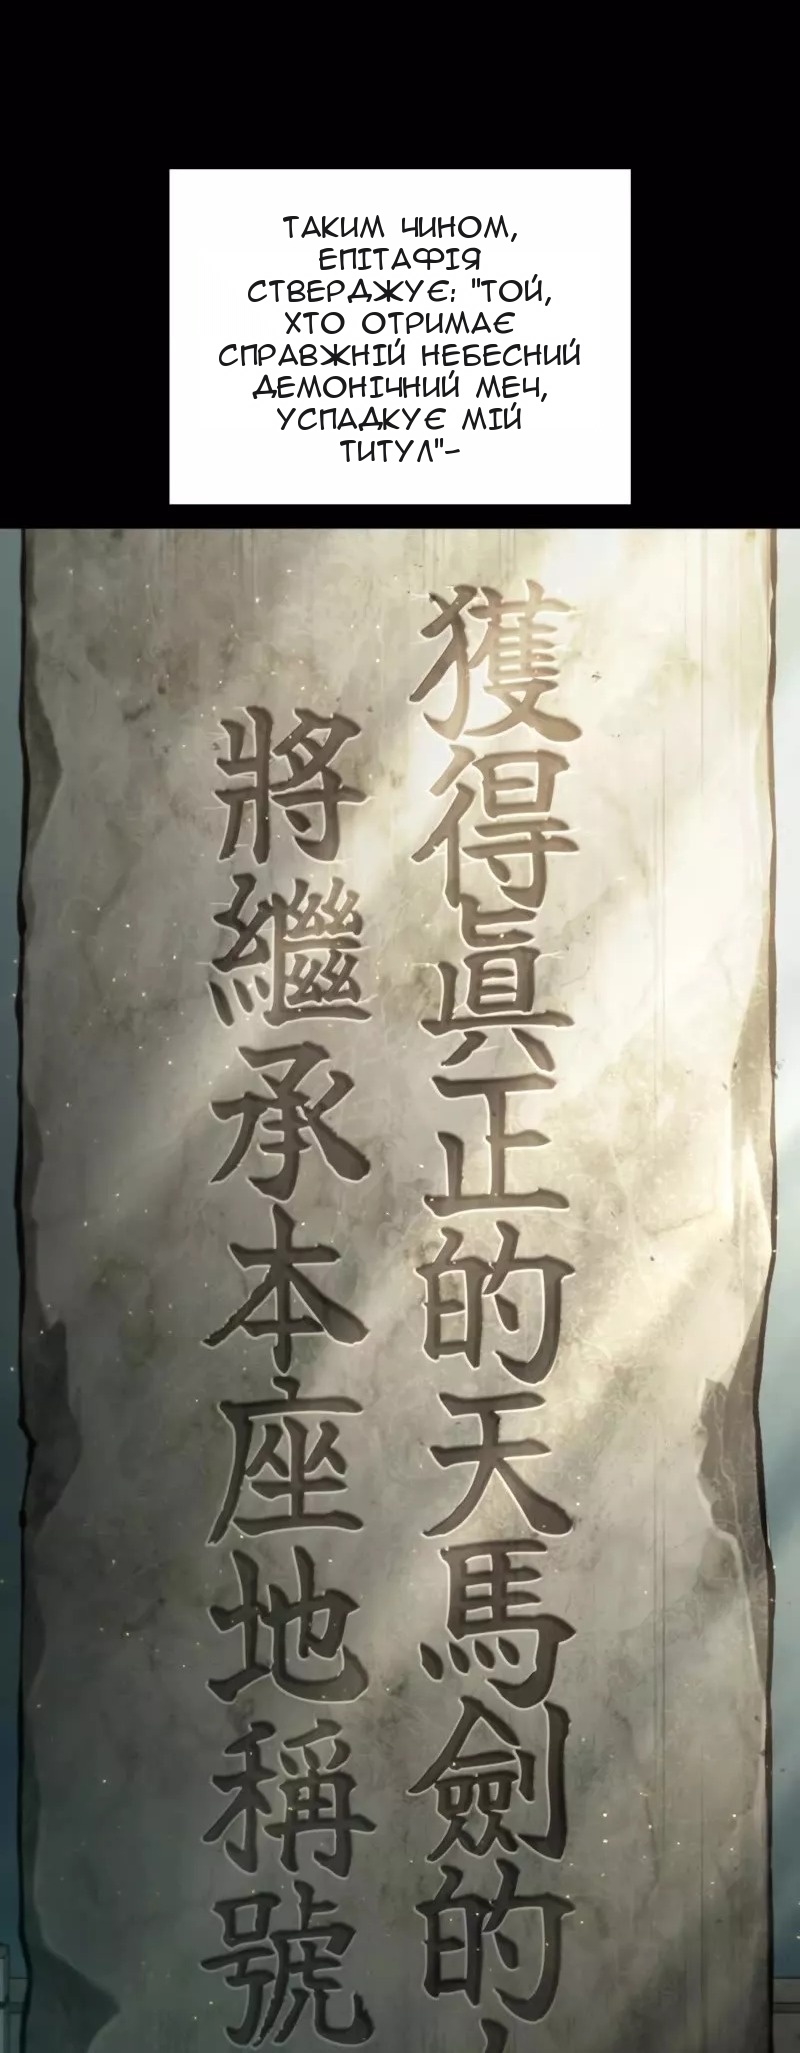 ТАКИМ ЧИНОМ,
ЕПІТАФІЯ
СТВЕРДЖУЄ: "ТОЙ,
ХТО ОТРИМАЄ
СПРАВЖНІЙ НЕБЕСНИЙ
ДЕМОНІЧНИЙ МЕЧ,
УСПАДКУЄ МІЙ
ТИТУЛ"-
獲得眞正的天馬劍的
將繼承本座地稱號